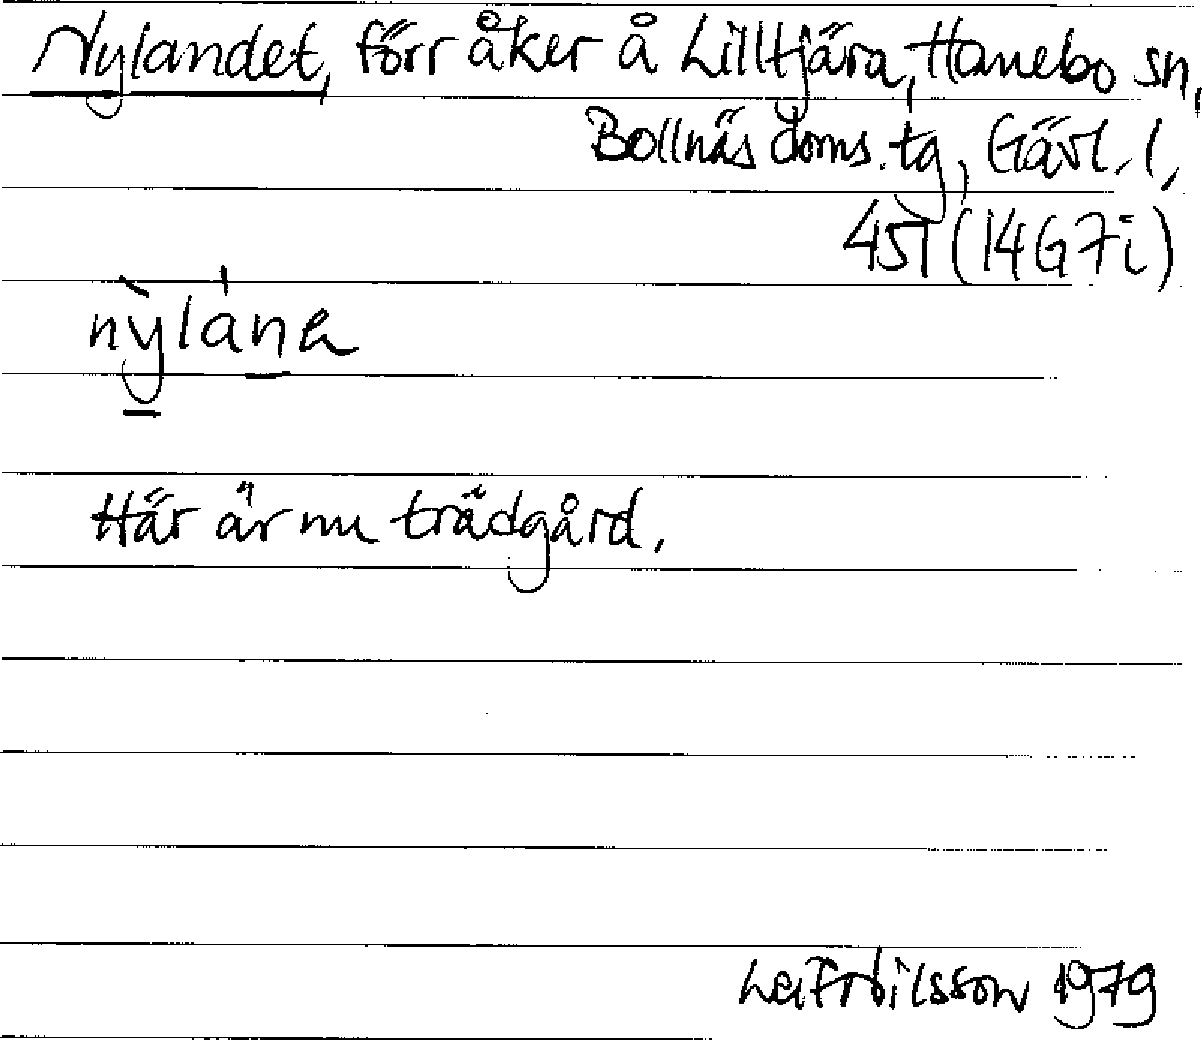 Nylandet, förr åker å Lilltjära, Hanebo sn,
Bollnäs doms. tg, Gävl. l,
451 (14G7i)
nỳlána
Här är nu trädgård.
Leif Nilsson 1979